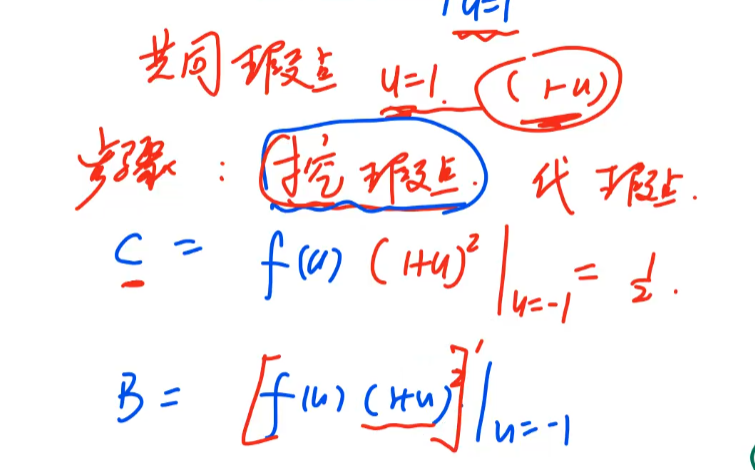 u=1
共同瑕点 u=1 (1-u)
步骤：挖瑕点. 代瑕点.
C = f(u) (1+u)²|u=-1 = 1/2.
B = [f(u) (1+u)²]'|u=-1